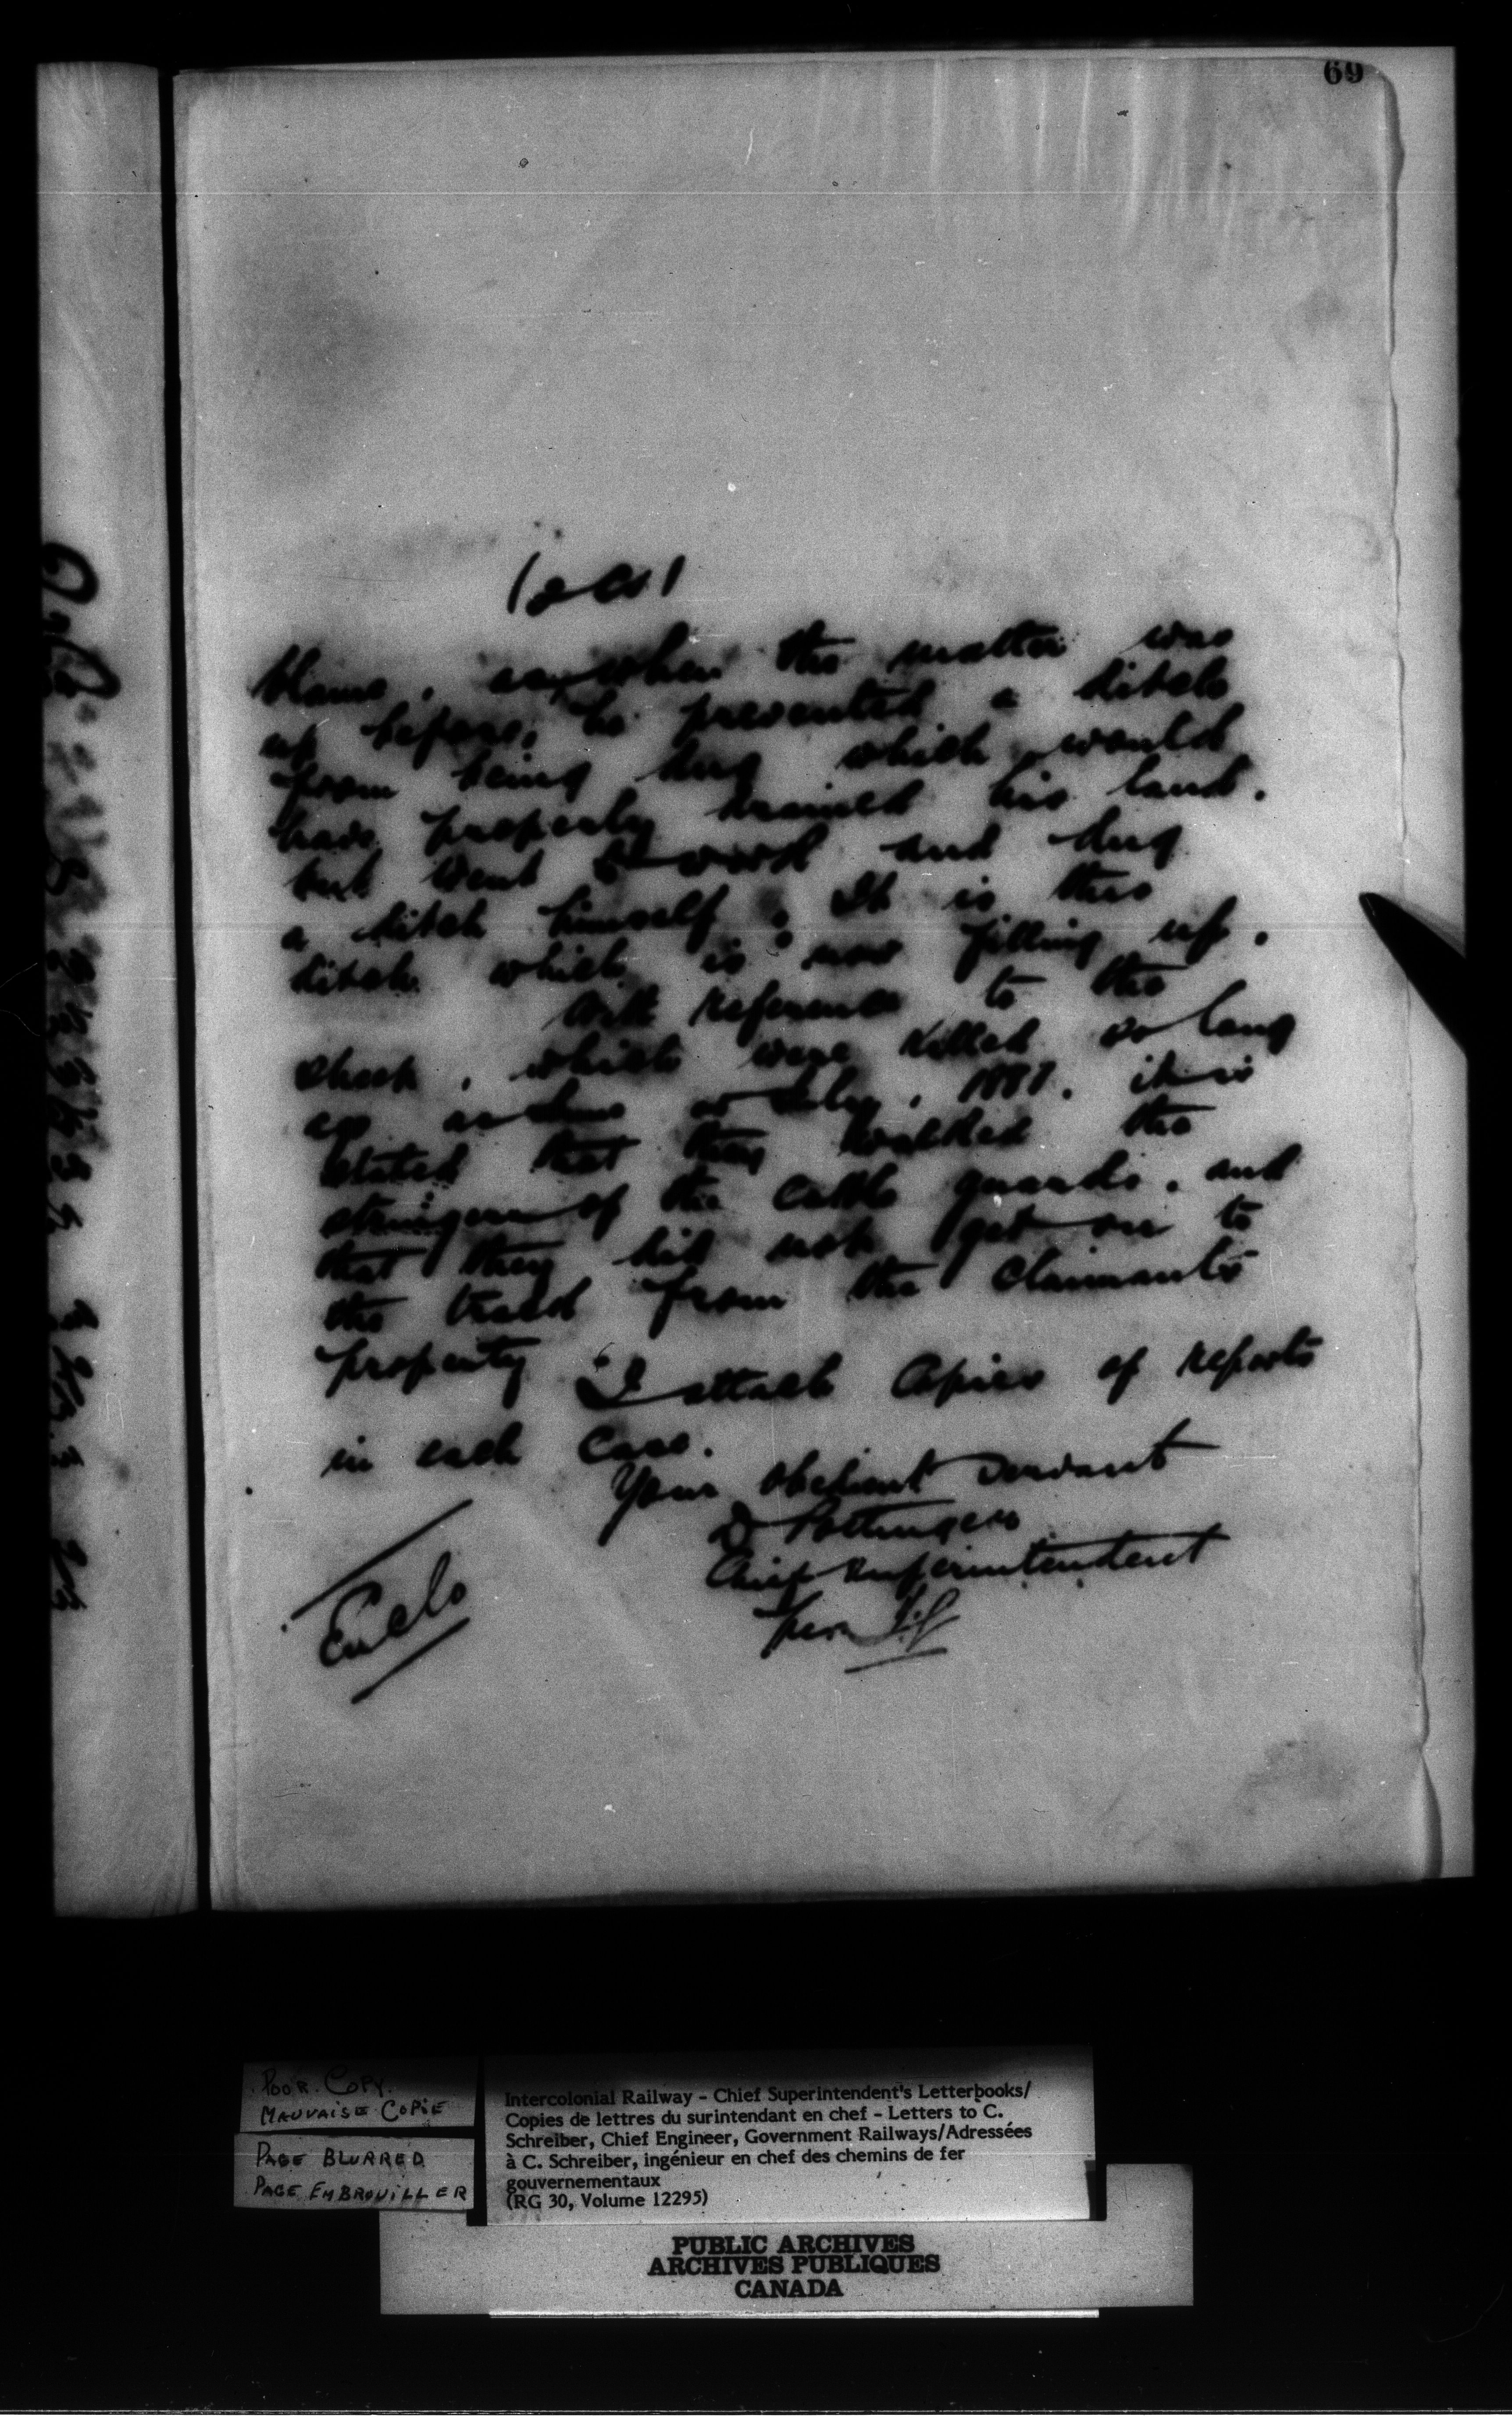 69
blame, as when the matter was
up before, he prevented a ditch
from being dug which would
have properly drained his land.
but went to work and dug
a ditch himself. It is this
ditch which is now filling up.
With reference to the
sheep, which were killed so long
ago as June or July, 1887. it is
stated that they walked the
stringers of the cattle guards. and
that they did not get on to
the track from the Claimant's
property
I attach Copies of reports
in each Case.
Your obedient servant
D Pottinger
Chief Superintendent
per
Enclo
POOR COPY.
MAUVAISE COPIE
PAGE BLURRED
PAGE EMBROUILLER
Intercolonial Railway - Chief Superintendent's Letterbooks/
Copies de lettres du surintendant en chef - Letters to C.
Schreiber, Chief Engineer, Government Railways/Adressées
à C. Schreiber, ingénieur en chef des chemins de fer
gouvernementaux
(RG 30, Volume 12295)
PUBLIC ARCHIVES
ARCHIVES PUBLIQUES
CANADA